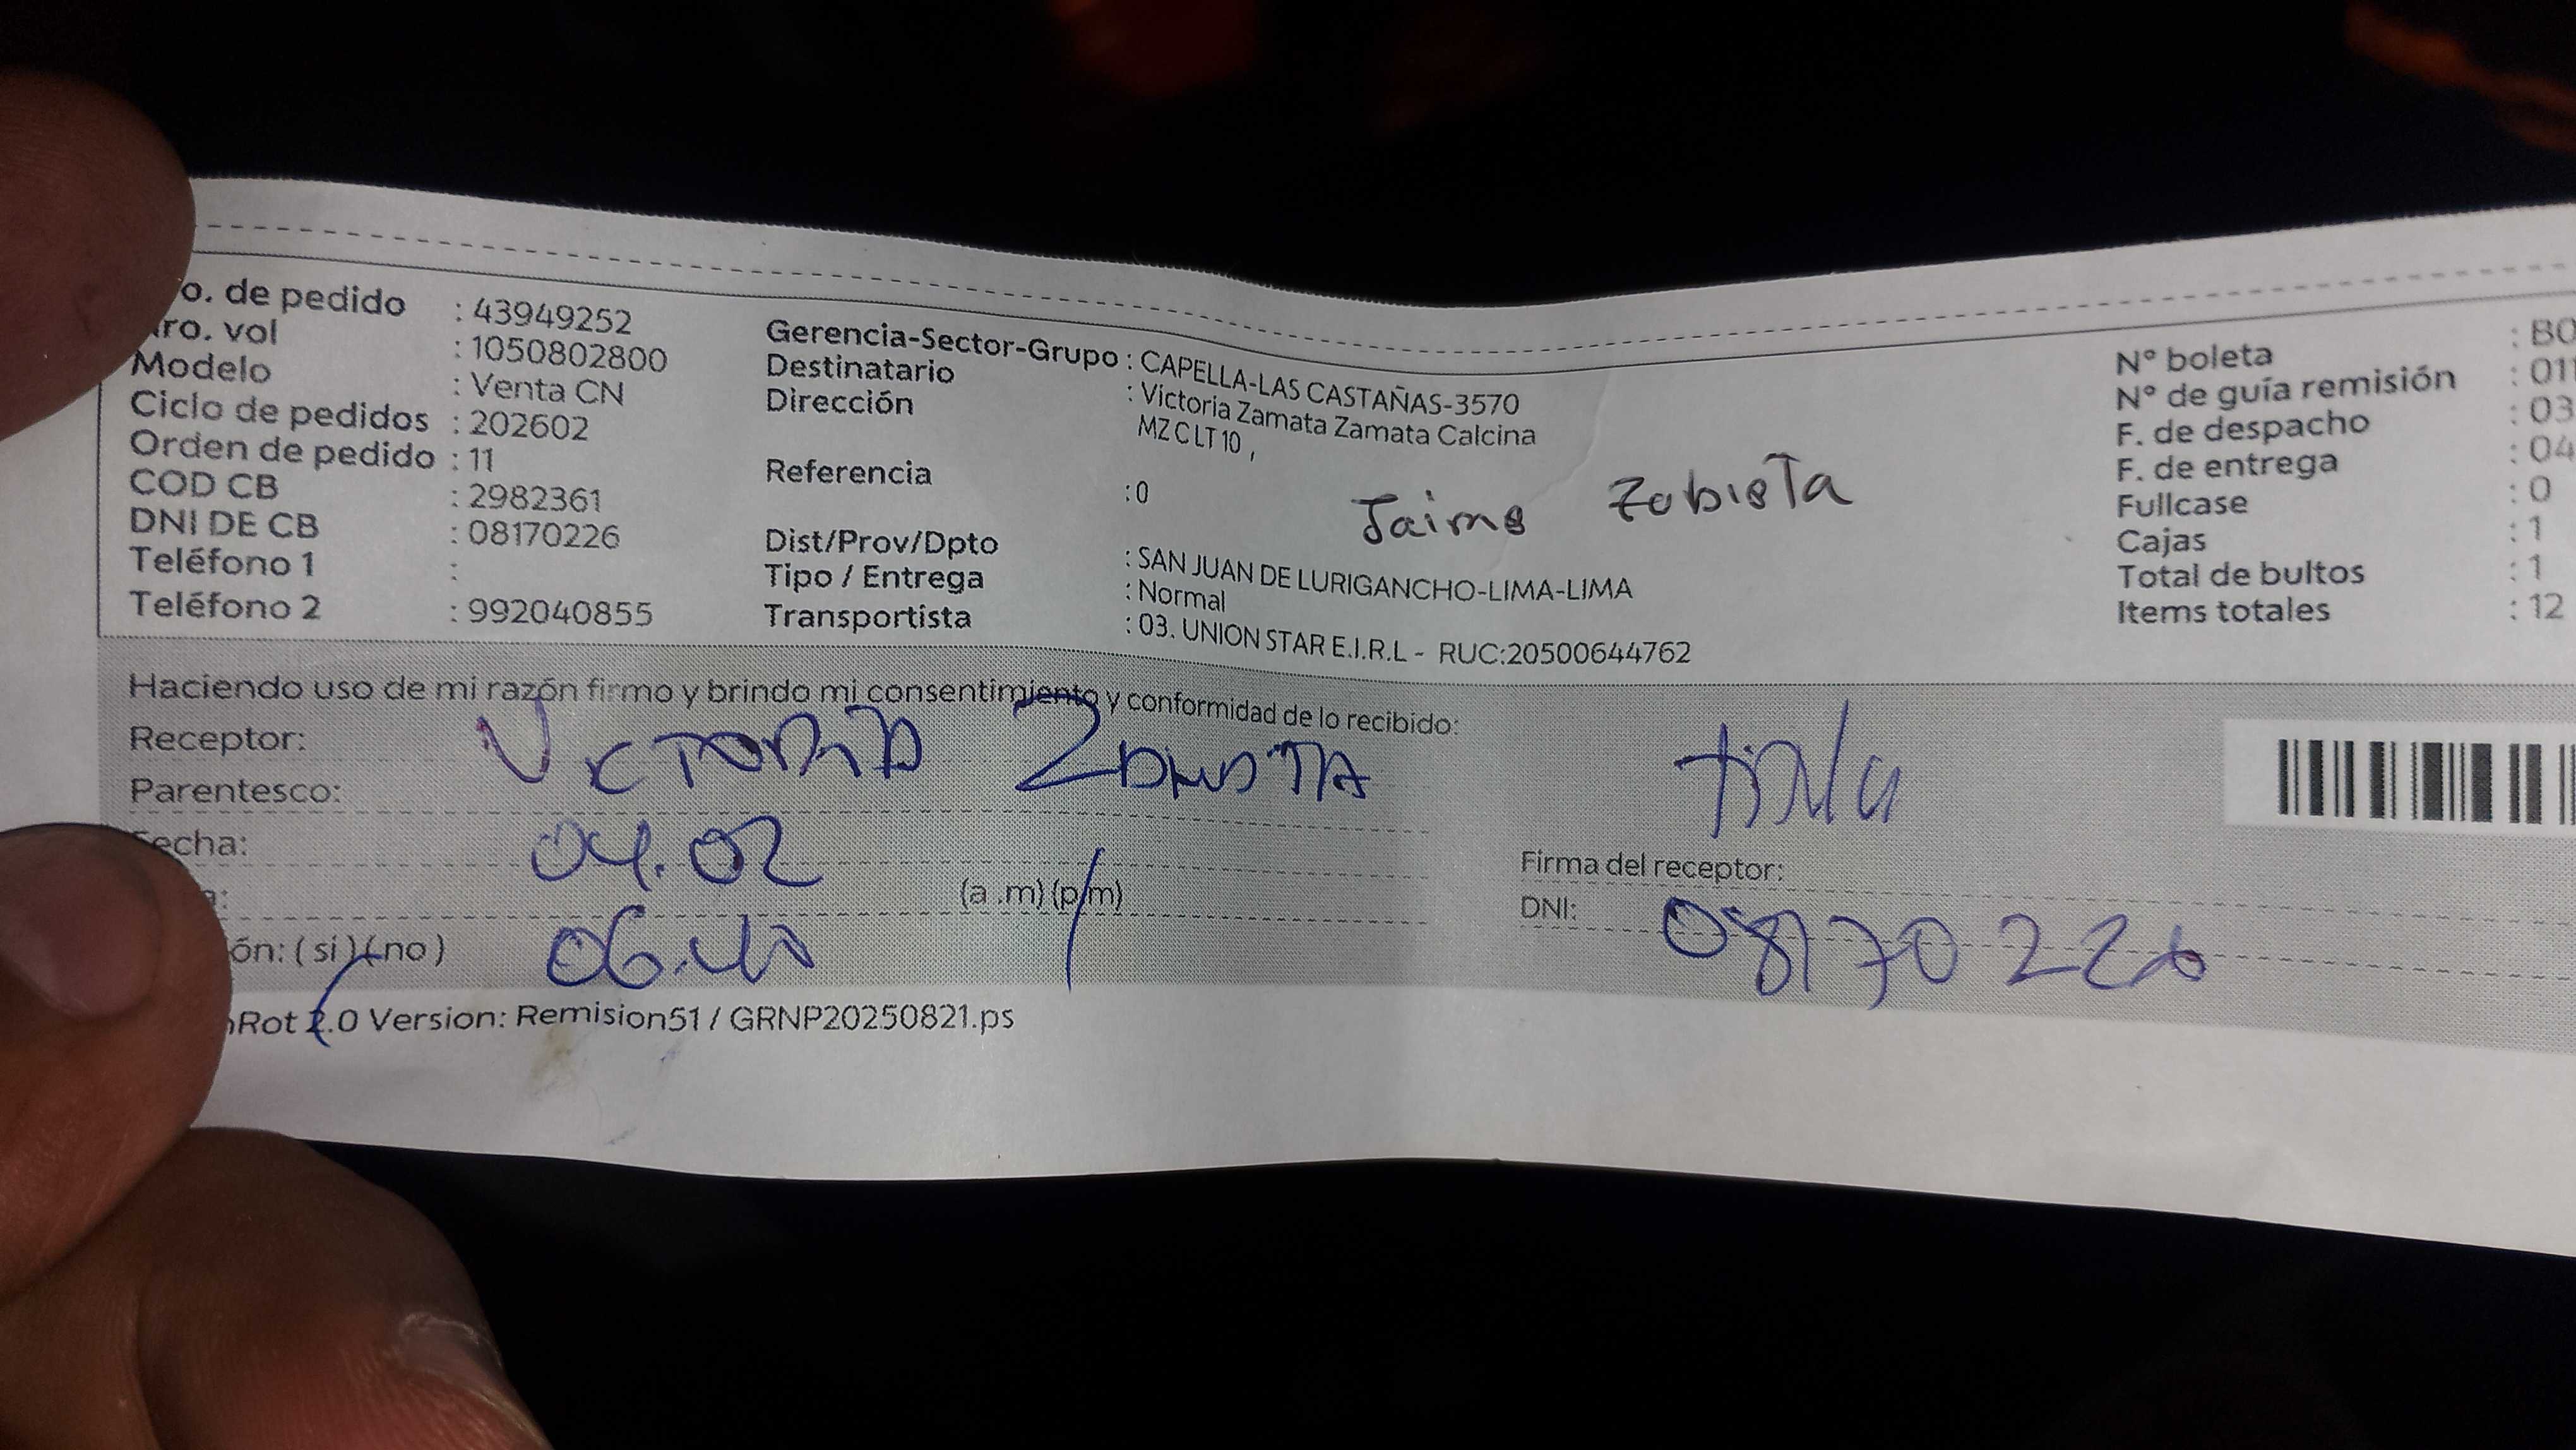 o. de pedido : 43949252
ro. vol : 1050802800
Modelo : Venta CN
Ciclo de pedidos : 202602
Orden de pedido : 11
COD CB : 2982361
DNI DE CB : 08170226
Teléfono 1 :
Teléfono 2 : 992040855
Gerencia-Sector-Grupo : CAPELLA-LAS CASTAÑAS-3570
Destinatario : Victoria Zamata Zamata Calcina
Dirección : MZ C LT 10 ,
Referencia : 0
Jaime Zubieta
Dist/Prov/Dpto : SAN JUAN DE LURIGANCHO-LIMA-LIMA
Tipo / Entrega : Normal
Transportista : 03. UNION STAR E.I.R.L - RUC:20500644762
N° boleta : B0
N° de guía remisión : 011
F. de despacho : 03
F. de entrega : 04
Fullcase : 0
Cajas : 1
Total de bultos : 1
Items totales : 12
Haciendo uso de mi razón firmo y brindo mi consentimiento y conformidad de lo recibido:
Receptor: VICTORIA
Parentesco:
Fecha: 04.02
a: 06:40 (a .m) (p/m)
ón: ( si ) ( no )
Firma del receptor:
DNI: 08170226
Rot 2.0 Version: Remision51 / GRNP20250821.ps